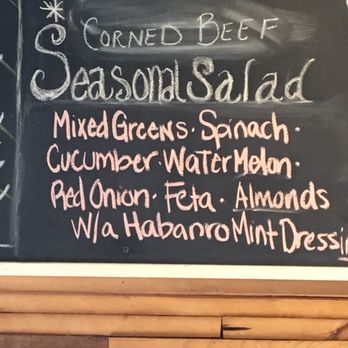 Corned Beef
Seasonal Salad
Mixed Greens · Spinach ·
Cucumber · WaterMelon ·
Red Onion · Feta · Almonds
w/a Habanro Mint Dressi